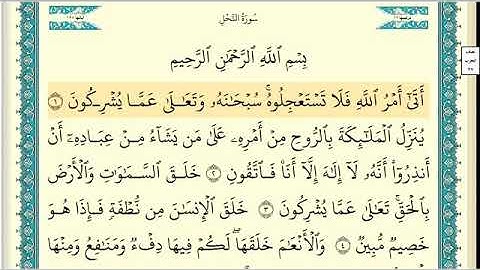 سُورَةُ النَّحْلِ
بِسْمِ اللَّهِ الرَّحْمَٰنِ الرَّحِيمِ
أَتَىٰٓ أَمْرُ اللَّهِ فَلَا تَسْتَعْجِلُوهُ ۚ سُبْحَٰنَهُۥ وَتَعَٰلَىٰ عَمَّا يُشْرِكُونَ ١
يُنَزِّلُ الْمَلَٰٓئِكَةَ بِالرُّوحِ مِنْ أَمْرِهِۦ عَلَىٰ مَن يَشَآءُ مِنْ عِبَادِهِۦٓ أَنْ
أَنذِرُوٓا۟ أَنَّهُۥ لَآ إِلَٰهَ إِلَّآ أَنَا۠ فَاتَّقُونِ ٢ خَلَقَ السَّمَٰوَٰتِ وَالْأَرْضَ
بِالْحَقِّ ۚ تَعَٰلَىٰ عَمَّا يُشْرِكُونَ ٣ خَلَقَ الْإِنسَٰنَ مِن نُّطْفَةٍ فَإِذَا هُوَ
خَصِيمٌ مُّبِينٌ ٤ وَالْأَنْعَٰمَ خَلَقَهَا ۗ لَكُمْ فِيهَا دِفْءٌ وَمَنَٰفِعُ وَمِنْهَا